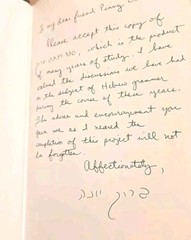 To my dear friend Penny
Please accept this copy of
which is the product
of many years of study. I have
valued the discussions we have had
on the subject of Hebrew grammar
during the course of these years.
The advice and encouragement you
gave me as I neared the
completion of this project will not
be forgotten.
Affectionately,